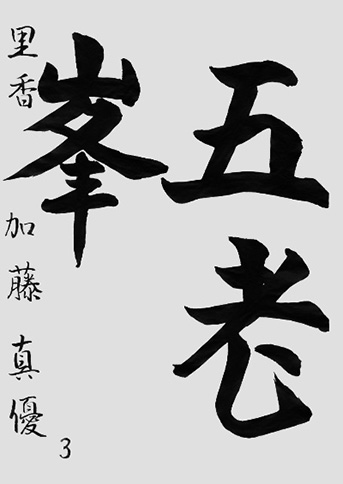 五老
峯
里香 加藤 真優
3